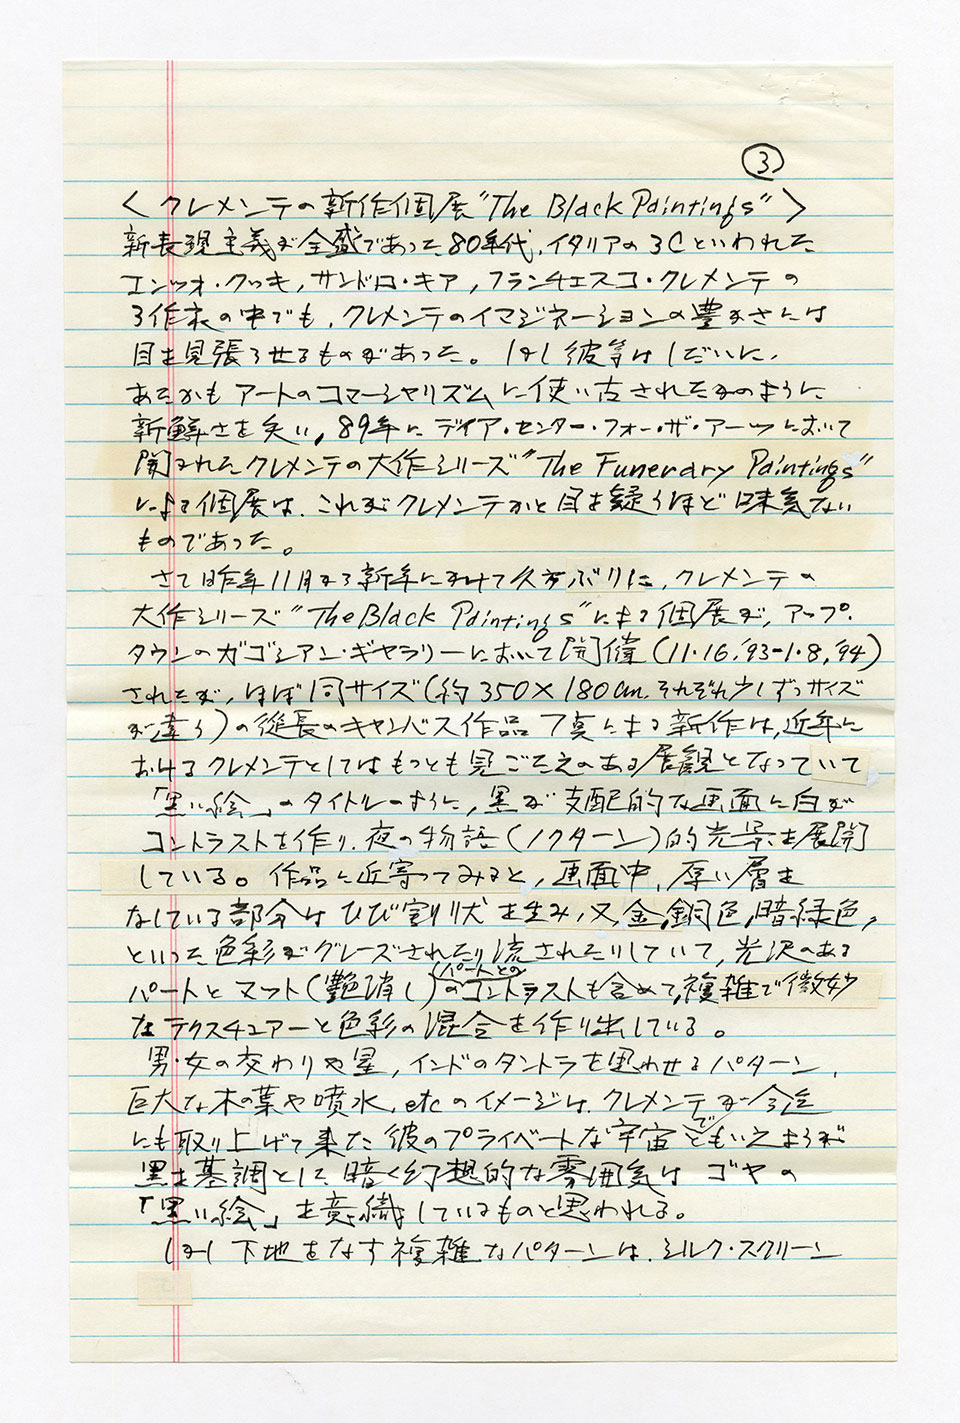 ③
〈クレメンテの新作個展"The Black Paintings"〉
新表現主義が全盛であった80年代、イタリアの3Cといわれた
エンツォ・クッキ,サンドロ・キア,フランチェスコ・クレメンテの
3作家の中でも、クレメンテのイマジネーションの豊かさには
目を見張らせるものがあった。しかし彼等はしだいに、
あたかもアートのコマーシャリズムに使い古されたかのように
新鮮さを失い,89年にディア・センター・フォー・ザ・アーツにおいて
開かれたクレメンテの大作シリーズ"The Funerary Paintings"
による個展は、これがクレメンテかと目を疑うほど味気ない
ものであった。
さて昨年11月から新年にかけて久方ぶりに,クレメンテの
大作シリーズ"The Black Paintings"による個展が,アップ・
タウンのガゴシアン・ギャラリーにおいて開催(11・16,93-1・8,94)
されたが,ほぼ同サイズ(約350×180cm.それぞれ少しずつサイズ
が違う)の縦長のキャンバス作品7点による新作は,近年に
おけるクレメンテとしてはもっとも見ごたえのある展観となっていて
「黒い絵」のタイトルのように,黒が支配的な画面に白が
コントラストを作り、夜の物語(ノクターン)的光景を展開
している。作品に近寄ってみると,画面中,厚い層を
なしている部分はひび割り状を生み,又,金,銅色,暗緑色,
といった色彩がグレーズされたり流されたりしていて,光沢のある
パートとマット(艶消し)(パートとの)のコントラストも含めて,複雑で微妙
なテクスチュアーと色彩の混合を作り出している。
男・女の交わりや星,インドのタントラを思わせるパターン,
巨大な木の葉や噴水,etcのイメージは、クレメンテが今迄
にも取り上げて来た彼のプライベートな宇宙でともいえようが
黒を基調として、暗く幻想的な雰囲気はゴヤの
「黒い絵」を意識しているものと思われる。
しかし下地をなす複雑なパターンは、シルク・スクリーン